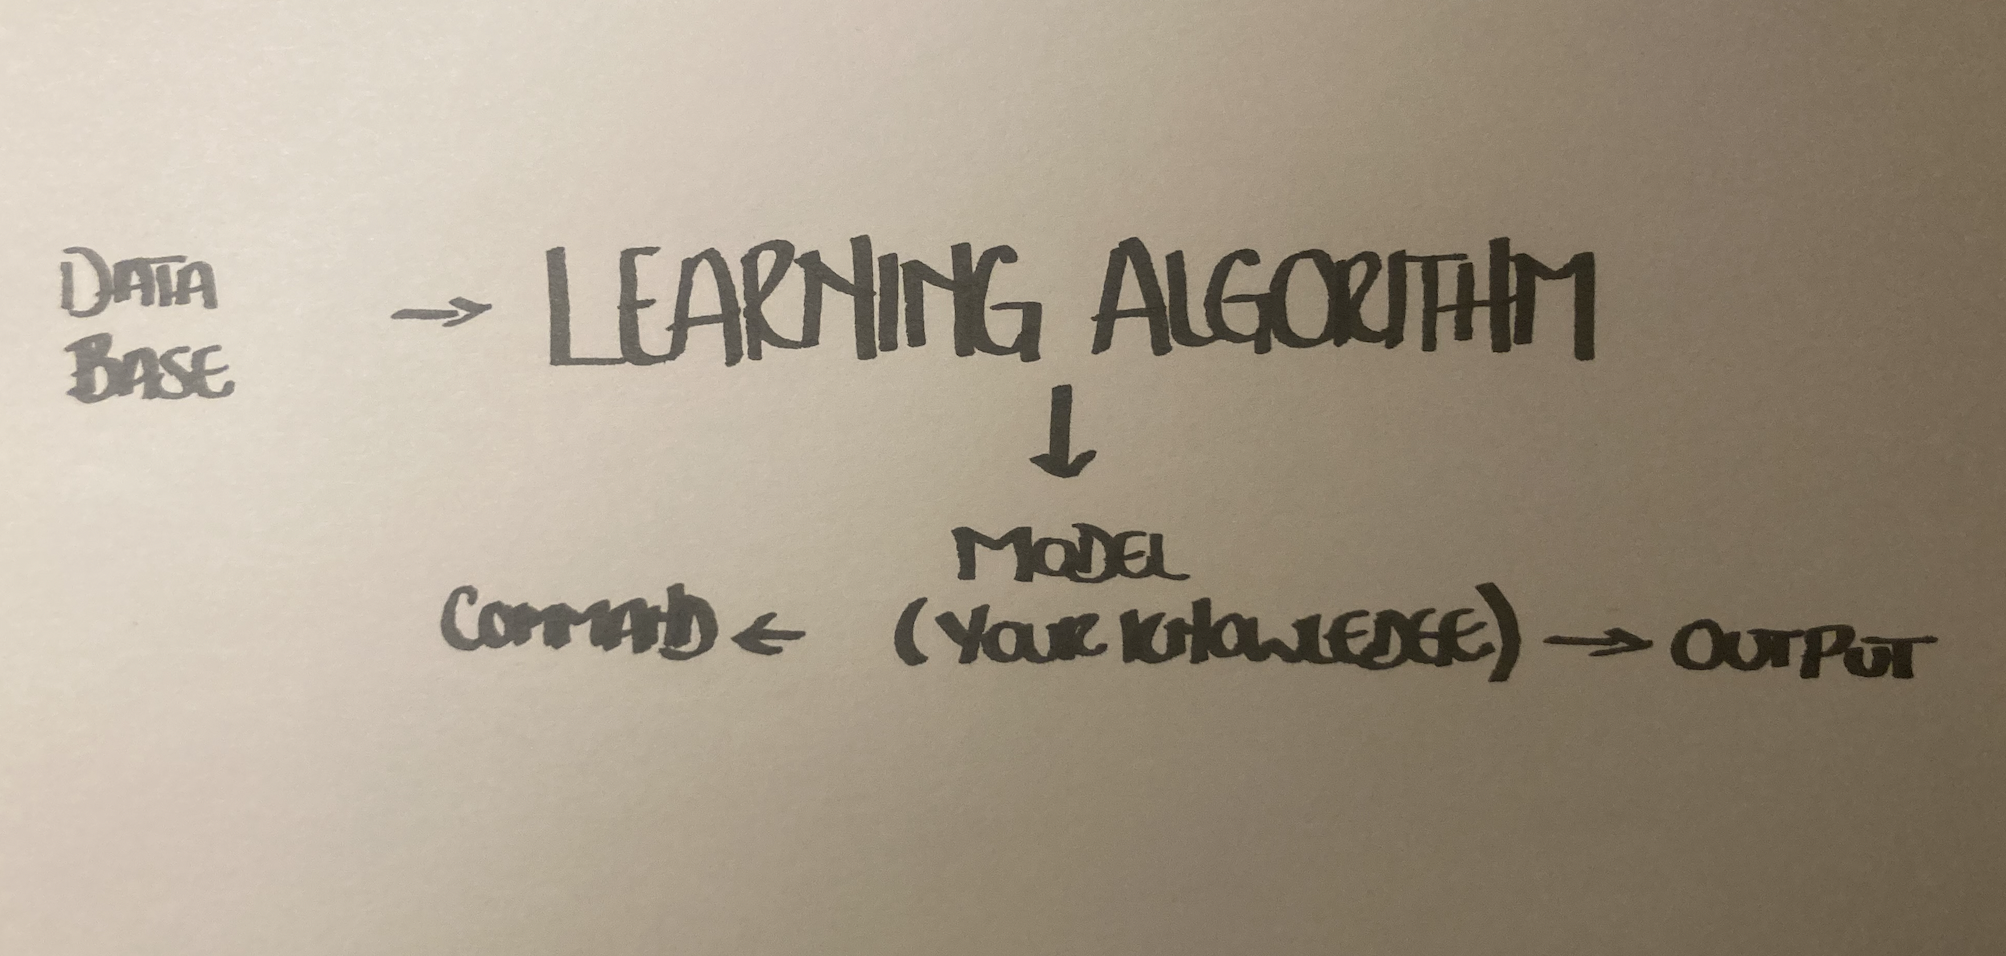 DATA
BASE
→ LEARNING ALGORITHM
↓
MODEL
COMMAND ← (YOUR KNOWLEDGE) → OUTPUT